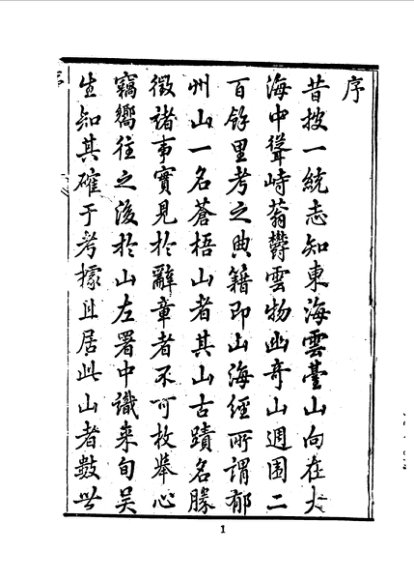 序
昔披一統志知東海雲臺山向在大
海中聳峙蓊鬱雲物幽奇山週圍二
百餘里考之典籍即山海經所謂郁
州山一名蒼梧山者其山古蹟名勝
徵諸事實見於辭章者不可枚舉心
竊嚮往之後於山左署中識来旬吴
生知其確于考據且居此山者數世
1